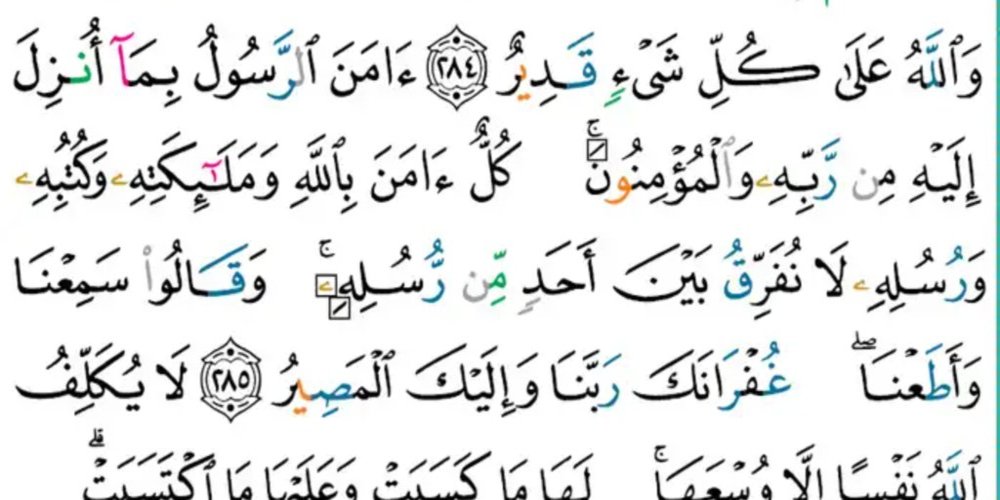 وَٱللَّهُ عَلَىٰ كُلِّ شَىْءٍ قَدِيرٌ ٢٨٤ ءَامَنَ ٱلرَّسُولُ بِمَآ أُنزِلَ
إِلَيْهِ مِن رَّبِّهِۦ وَٱلْمُؤْمِنُونَۚ كُلٌّ ءَامَنَ بِٱللَّهِ وَمَلَـٰٓئِكَتِهِۦ وَكُتُبِهِۦ
وَرُسُلِهِۦ لَا نُفَرِّقُ بَيْنَ أَحَدٍ مِّن رُّسُلِهِۦۚ وَقَالُوا۟ سَمِعْنَا
وَأَطَعْنَاۖ غُفْرَانَكَ رَبَّنَا وَإِلَيْكَ ٱلْمَصِيرُ ٢٨٥ لَا يُكَلِّفُ
ٱللَّهُ نَفْسًا إِلَّا وُسْعَهَاۚ لَهَا مَا كَسَبَتْ وَعَلَيْهَا مَا ٱكْتَسَبَتْۗ